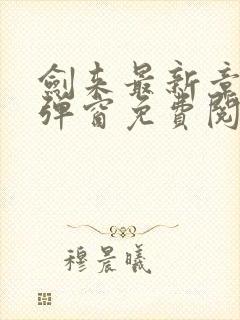 劍来最新章
弹窗免費閱
穆晨曦